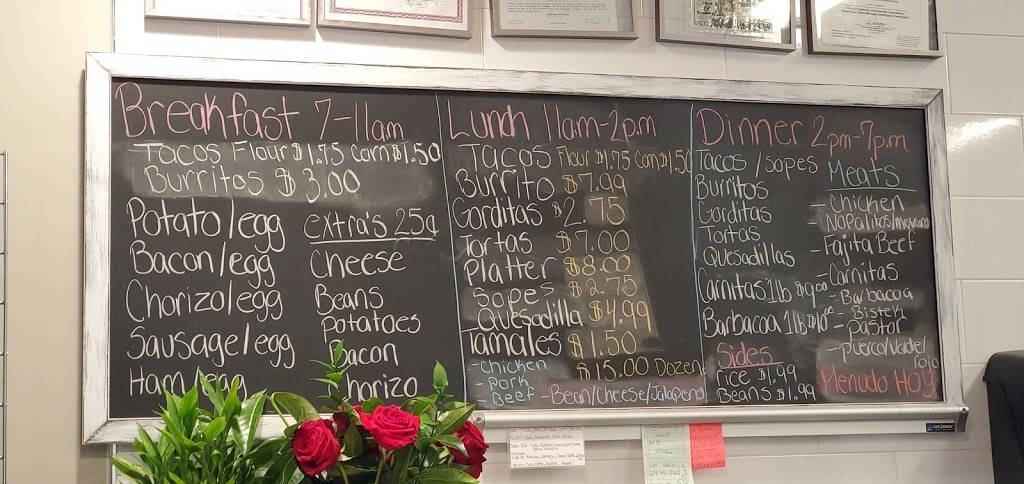 Breakfast 7-11am
Tacos Flour $1.75 Corn $1.50
Burritos $3.00
Potato/egg
Bacon/egg
Chorizo/egg
Sausage/egg
Ham/egg
extra's 25¢
Cheese
Beans
Potatoes
Bacon
Chorizo
Lunch 11am-2p.m
Tacos Flour $1.75 Corn $1.50
Burrito $7.99
Gorditas $2.75
Tortas $7.00
Platter $8.00
Sopes $2.75
Quesadilla $4.99
Tamales $1.50
-Chicken $15.00 Dozen
-Pork
-Beef -Bean/Cheese/Jalapeno
Dinner 2pm-7p.m
Tacos/sopes
Burritos
Gorditas
Tortas
Quesadillas
Carnitas 1lb $9.00
Barbacoa 1lb
Sides
rice $1.99
Beans $1.99
Meats
-Chicken
-Fajita Beef
-Carnitas
-Barbacoa
-Bistek
-Pastor
-puerco/Verde/
rojo
Menudo Hoy